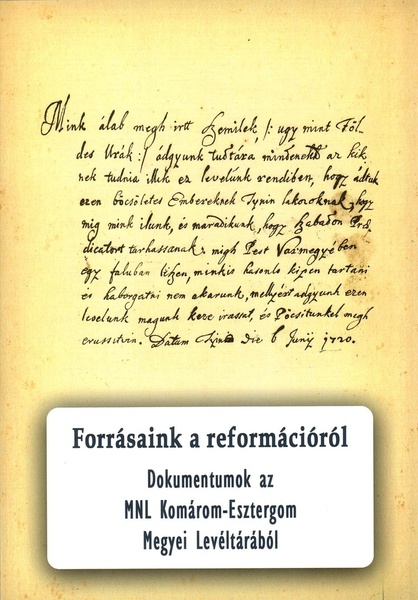 Mink álab megh irtt Szemilek, /: ugy mint Föl-
des Urák :/ ádgyunk tudtára mindenekk az kik-
nek tudnia illik ez levelünk rendiben, hogy ádtuk
ezen böcsöletes Embereknek Tynin lakozoknak, hogy
mig mink ilünk, és maradikunk, hogy szabadon Præ-
dicatort tarhassanak, migh Pest Varmegyében
egy faluban lészen, minkis hasonlo kipen tartani
és haborgatni nem akarunk, mellyért adgyunk ezen
levelünk magunk keze irassat, és Pöcsitunkel megh
erussitvin. Datum Tyni die 6 Junÿ 1720.
Forrásaink a reformációról
Dokumentumok az
MNL Komárom-Esztergom
Megyei Levéltárából